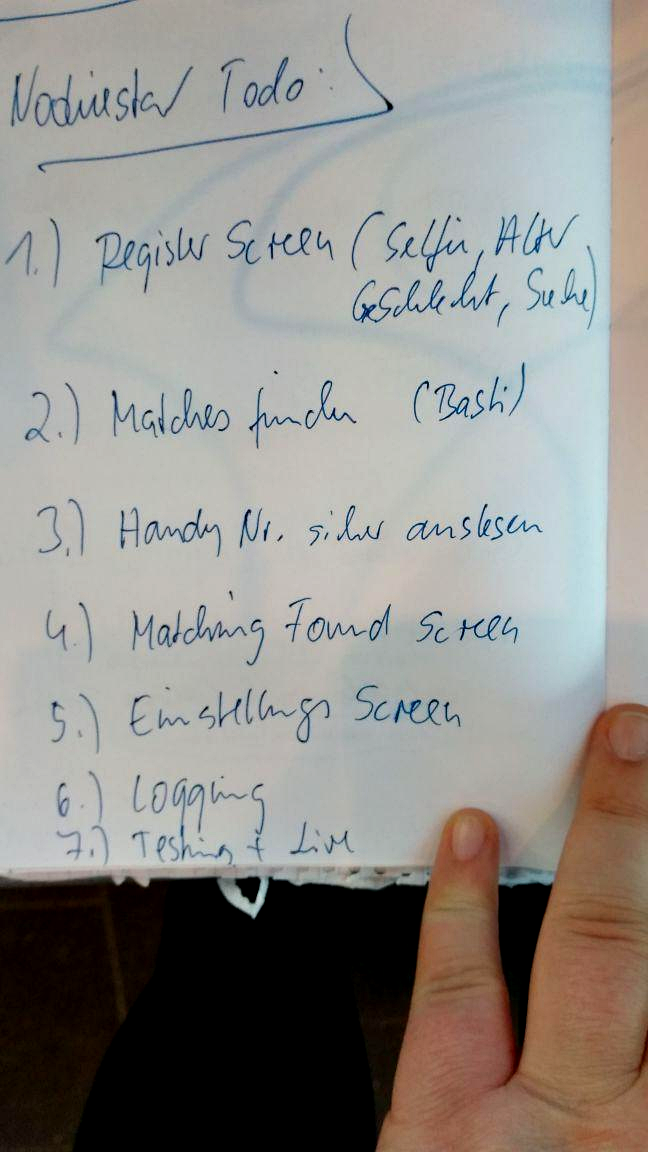 Todo:
1.) Register Screen (Selfie, Alter,
Geschlecht, Suche)
2.) Matches finden (Basti)
3.) Handy Nr. sicher auslesen
4.) Matching Found Screen
5.) Einstellungs Screen
6.) Logging
7.) Testing + Live